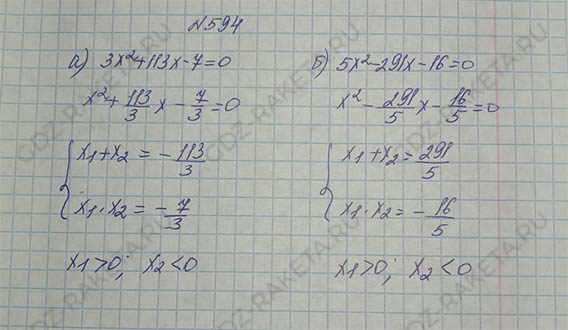 №594
а) 3x²+113x-7=0
x²+113/3 x - 7/3=0
x₁+x₂ = -113/3
x₁·x₂ = -7/3
x₁>0; x₂<0
б) 5x²-291x-16=0
x²-291/5 x-16/5=0
x₁+x₂=291/5
x₁·x₂=-16/5
x₁>0; x₂<0
GDZ-RAKETA.RU